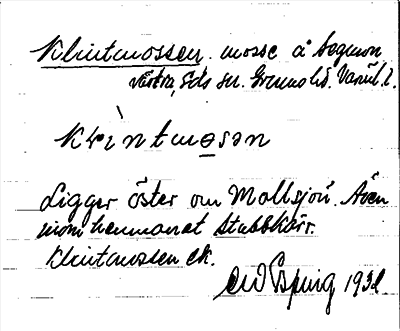 Klintmossen. mosse å Bogmon
västra, Eds sn. Grums hd. Värml. l.
Kḷìntmo̲sən
Ligger öster om Mallsjön. Även
inom hemmanet Stubbkärr.
Klintmossen ek.
1932